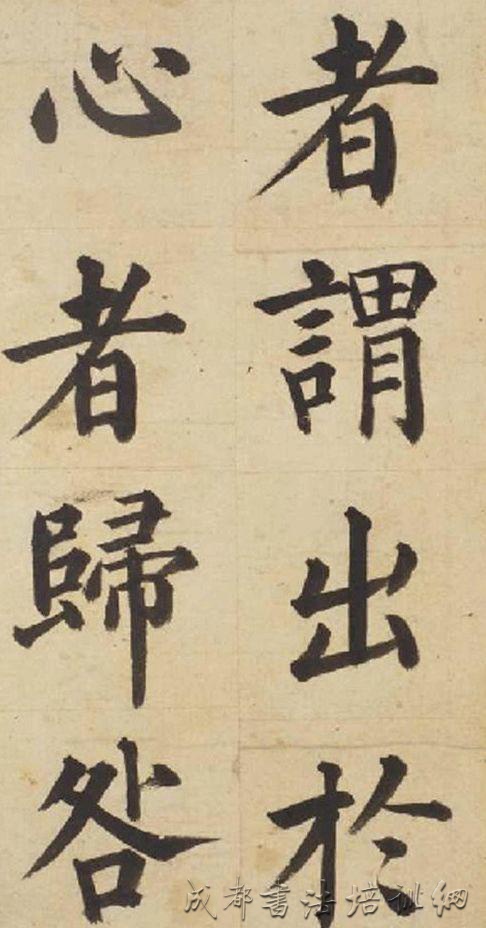 者謂出於
心者歸咎
成都書法培訓網